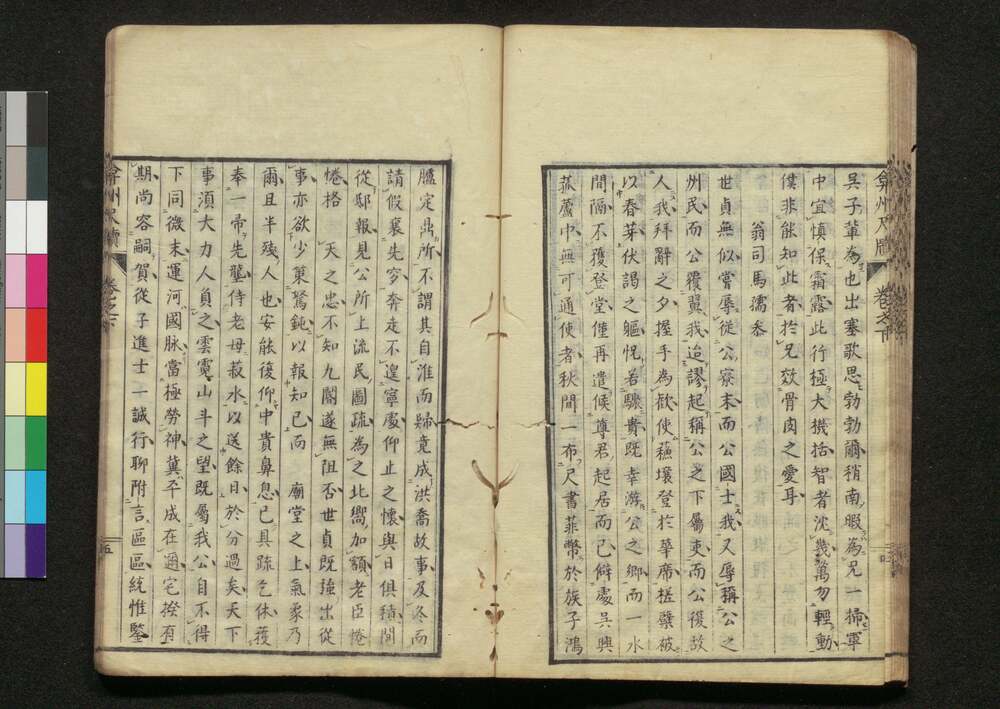 弇州尺牘 卷之下
吳子輩為也出塞歌思勃勃爾稍南暇為兄一掃軍
中宜慎保霜露此行極大機括智者沈幾萬勿輕動
僕非能知此者於兄效骨肉之愛耳
翁司馬濡參
世貞無似嘗辱從公寮末而公國士我又辱稱公之
州民而公覆翼我迨謬起稱公之下屬吏而公復故
人我拜辭之夕握手為歡使蘓壤登於華席槎櫱被
以春芽伏謁之軀怳若驥貴既幸游公之鄉而一水
間隔不獲登堂僅再遣候尊君起居而已僻處吳興
菰蘆中無可通使者秋間一布尺書菲幣於族子鴻
臚定鼎所不謂其自淮而歸竟成洪喬故事及冬而
請假襄先穸奔走不遑寧處仰止之懷與日俱積間
從邸報見公所上流民圖疏為之北嚮加額老臣惓
惓格 天之忠不知九閽遂無阻否世貞既強出從
事亦欲少策駑鈍以報知己而 廟堂之上氣象乃
爾且半殘人也安能復仰中貴鼻息已具疏乞休獲
奉一帚先壟侍老母菽水以送餘日於分過矣天下
事須大力人負之雲霓山斗之望既屬我公自不得
下同微末運河國脉當極勞神冀平成在邇宅揆有
期尚容嗣賀從子進士一誠行聊附言區區統惟鑒
弇州尺牘 卷之下 五